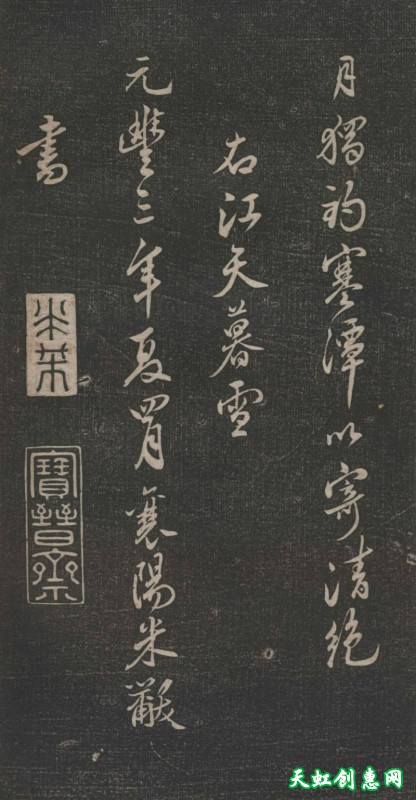 月獨釣寒潭以寄清絶
右江天暮雪
元豐三年夏四月襄陽米黻
書
米芾
寶晉齋
天虹创惠网